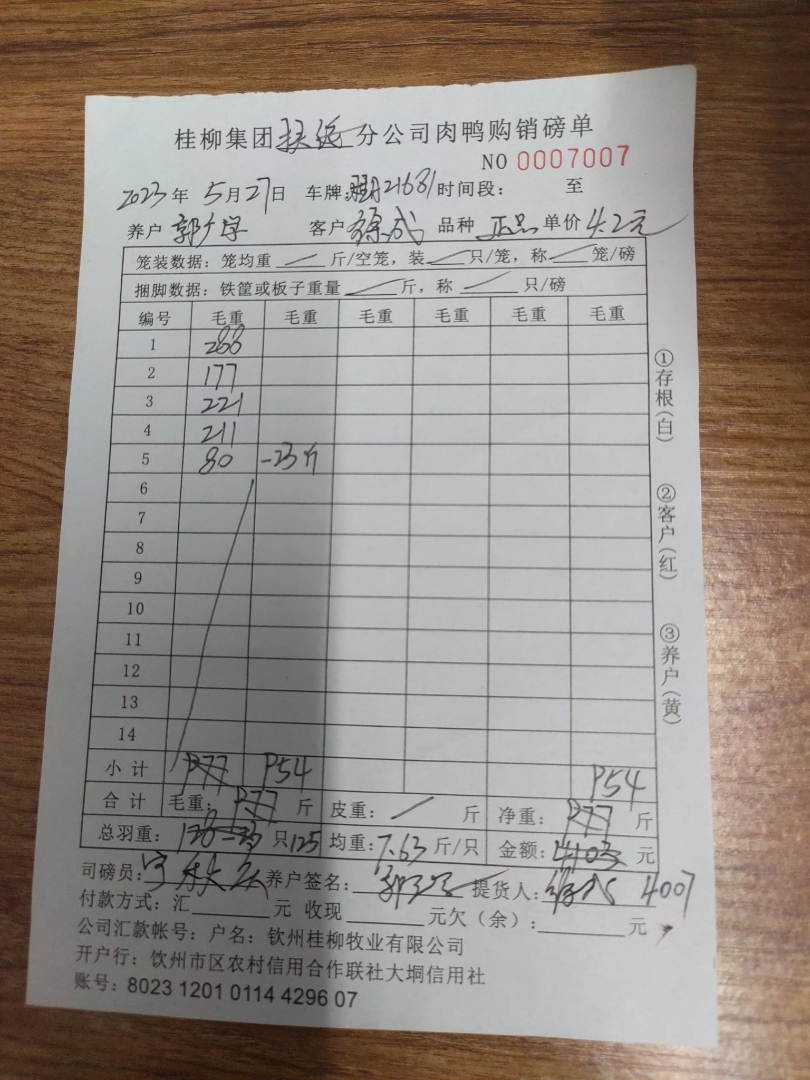 桂柳集团扶绥分公司肉鸭购销磅单
NO 0007007
2023年5月27日 车牌:21681时间段: 至
养户 郭 客户 徐成 品种 正品 单价4.2元
笼装数据:笼均重 斤/空笼,装 只/笼,称 笼/磅
捆脚数据:铁筐或板子重量 斤,称 只/磅
编号 毛重 毛重 毛重 毛重 毛重 毛重
1 288
2 177
3 221
4 211
5 80 -23斤
6
7
8
9
10
11
12
13
14
小计 977 954 954
合计 毛重:977斤 皮重: 斤 净重:977斤
总羽重:128-3只125 均重:7.63斤/只 金额:4103元
司磅员: 养户签名: 提货人: 4007
付款方式:汇 元 收现 元欠(余): 元
公司汇款帐号:户名:钦州桂柳牧业有限公司
开户行:钦州市区农村信用合作联社大垌信用社
账号:8023 1201 0114 4296 07
①存根(白)
②客户(红)
③养户(黄)